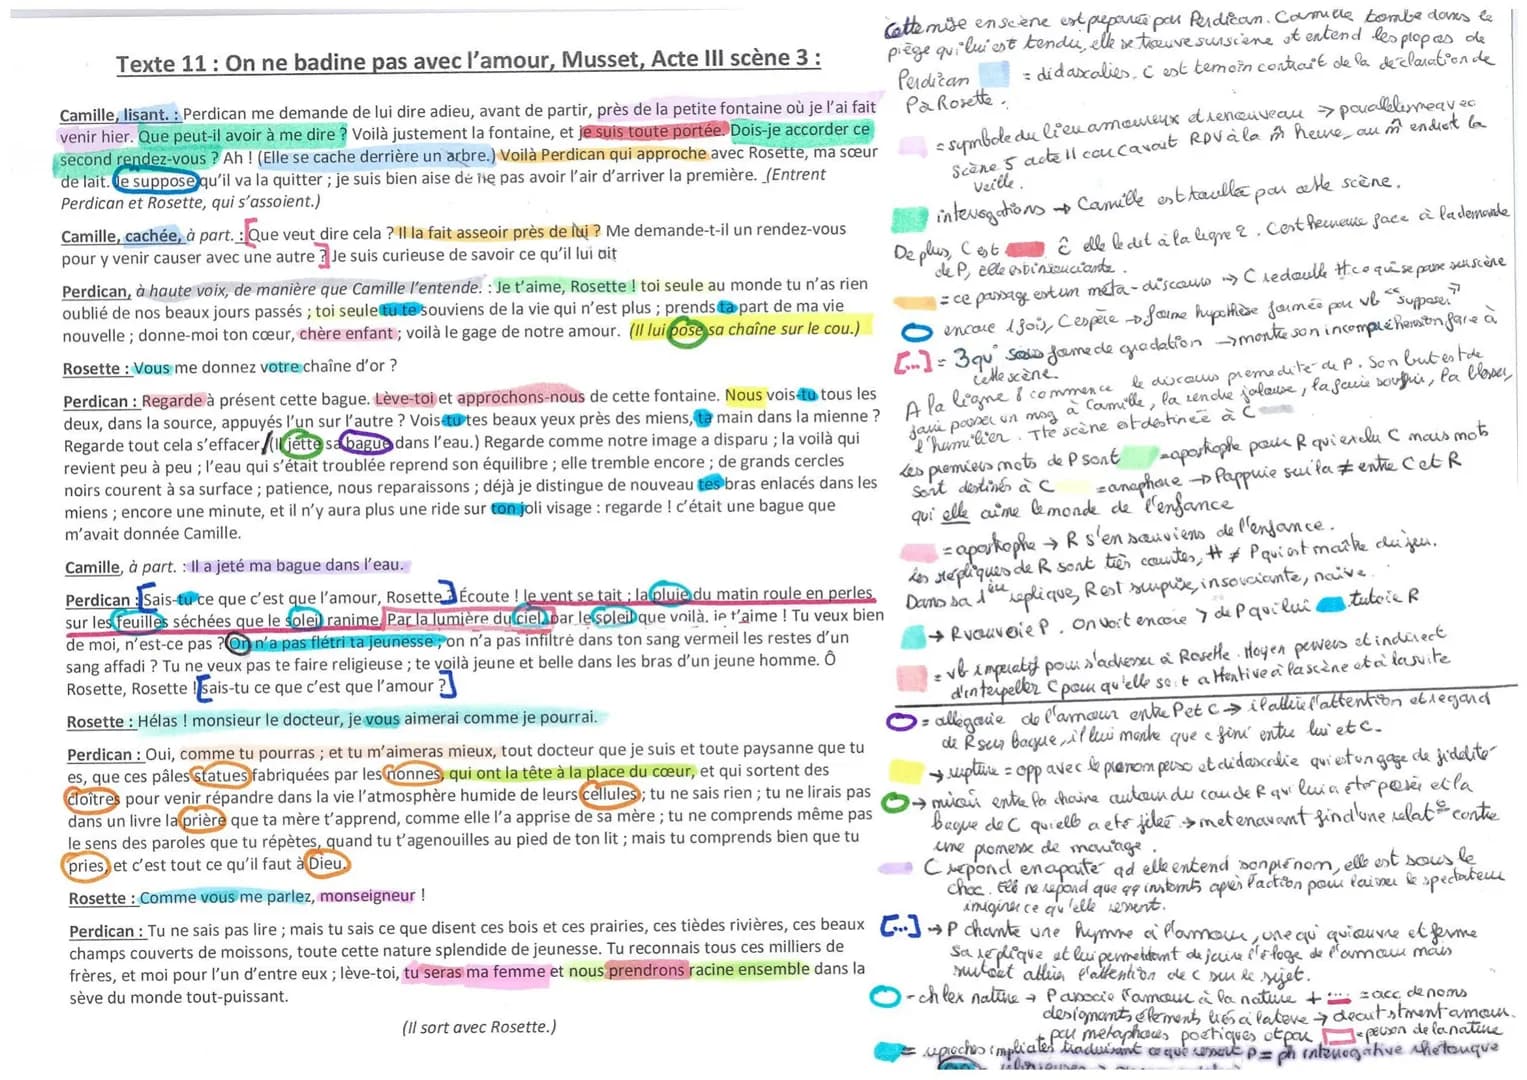 Texte 11 : On ne badine pas avec l'amour, Musset, Acte III scène 3 :
Camille, lisant. : Perdican me demande de lui dire adieu, avant de partir, près de la petite fontaine où je l'ai fait
venir hier. Que peut-il avoir à me dire ? Voilà justement la fontaine, et je suis toute portée. Dois-je accorder ce
second rendez-vous ? Ah ! (Elle se cache derrière un arbre.) Voilà Perdican qui approche avec Rosette, ma sœur
de lait. Je suppose qu'il va la quitter ; je suis bien aise de ne pas avoir l'air d'arriver la première. (Entrent
Perdican et Rosette, qui s'assoient.)
Camille, cachée, à part. : [Que veut dire cela ? Il la fait asseoir près de lui ? Me demande-t-il un rendez-vous
pour y venir causer avec une autre ?] Je suis curieuse de savoir ce qu'il lui dit
Perdican, à haute voix, de manière que Camille l'entende. : Je t'aime, Rosette ! toi seule au monde tu n'as rien
oublié de nos beaux jours passés ; toi seule tu te souviens de la vie qui n'est plus ; prends ta part de ma vie
nouvelle ; donne-moi ton cœur, chère enfant ; voilà le gage de notre amour. (Il lui pose sa chaîne sur le cou.)
Rosette : Vous me donnez votre chaîne d'or ?
Perdican : Regarde à présent cette bague. Lève-toi et approchons-nous de cette fontaine. Nous vois-tu tous les
deux, dans la source, appuyés l'un sur l'autre ? Vois-tu tes beaux yeux près des miens, ta main dans la mienne ?
Regarde tout cela s'effacer (Il jette sa bague dans l'eau.) Regarde comme notre image a disparu ; la voilà qui
revient peu à peu ; l'eau qui s'était troublée reprend son équilibre ; elle tremble encore ; de grands cercles
noirs courent à sa surface ; patience, nous reparaissons ; déjà je distingue de nouveau tes bras enlacés dans les
miens ; encore une minute, et il n'y aura plus une ride sur ton joli visage : regarde ! c'était une bague que
m'avait donnée Camille.
Camille, à part. : Il a jeté ma bague dans l'eau.
Perdican : [Sais-tu ce que c'est que l'amour, Rosette ?] Écoute ! le vent se tait ; la pluie du matin roule en perles
sur les feuilles séchées que le soleil ranime. Par la lumière du ciel, par le soleil que voilà, je t'aime ! Tu veux bien
de moi, n'est-ce pas ? On n'a pas flétri ta jeunesse ; on n'a pas infiltré dans ton sang vermeil les restes d'un
sang affadi ? Tu ne veux pas te faire religieuse ; te voilà jeune et belle dans les bras d'un jeune homme. Ô
Rosette, Rosette ! [sais-tu ce que c'est que l'amour ?]
Rosette : Hélas ! monsieur le docteur, je vous aimerai comme je pourrai.
Perdican : Oui, comme tu pourras ; et tu m'aimeras mieux, tout docteur que je suis et toute paysanne que tu
es, que ces pâles statues fabriquées par les nonnes, qui ont la tête à la place du cœur, et qui sortent des
cloîtres pour venir répandre dans la vie l'atmosphère humide de leurs cellules ; tu ne sais rien ; tu ne lirais pas
dans un livre la prière que ta mère t'apprend, comme elle l'a apprise de sa mère ; tu ne comprends même pas
le sens des paroles que tu répètes, quand tu t'agenouilles au pied de ton lit ; mais tu comprends bien que tu
pries, et c'est tout ce qu'il faut à Dieu.
Rosette : Comme vous me parlez, monseigneur !
Perdican : Tu ne sais pas lire ; mais tu sais ce que disent ces bois et ces prairies, ces tièdes rivières, ces beaux
champs couverts de moissons, toute cette nature splendide de jeunesse. Tu reconnais tous ces milliers de
frères, et moi pour l'un d'entre eux ; lève-toi, tu seras ma femme et nous prendrons racine ensemble dans la
sève du monde tout-puissant.
(Il sort avec Rosette.)
Cette mise en scène est préparée par Perdican. Camille tombe dans le
piège qui lui est tendu, elle se trouve sur scène et entend les propos de
Perdican = didascalies. C est témoin contrait de la déclaration de
P à Rosette.
= symbole du lieu amoureux et renouveau → parallélisme avec
scène 5 acte II car C avait RDV à la m heure, au m endroit la
veille.
interrogations → Camille est troublée par cette scène.
De plus, C est elle le dit à la ligne 2. C est heureuse face à la demande
de P, elle est insouciante.
= ce passage est un méta-discours → C redouble tt ce qui se passe sur scène
encore 1 fois, C espère → forme hypothèse formée par vb "suppose"
[...] = 3 qu° sous forme de gradation → montre son incompréhension face à
cette scène.
A la ligne 8 commence le discours prémédité de P. Son but est de
faire passer un msg à Camille, la rendre jalouse, la faire souffrir, la blesser,
l'humilier. Tte scène est destinée à C
Les premiers mots de P sont = apostrophe pour R qui exclu C mais mots
sont destinés à C = anaphore → P appuie sur la ≠ entre C et R
qui elle aime le monde de l'enfance
= apostrophe → R s'en souviens de l'enfance.
Les répliques de R sont très courtes, # ≠ P qui est maître du jeu.
Dans sa 1ère réplique, R est surprise, insouciante, naïve.
→ R vouvoie P. On voit encore > de P qui lui tutoie R
= vb impératif pour s'adresser à Rosette. Moyen pervers et indirect
d'interpeller C pour qu'elle soit attentive à la scène et à la suite
= allégorie de l'amour entre P et C → il attire l'attention et regard
de R sur bague, il lui montre que c fini entre lui et C.
→ rupture = opp avec le pronom perso et didascalie qui est un gage de fidélité
→ miroir entre la chaine autour du cou de R qui lui a été posée et la
bague de C qu'elle a été jetée → met en avant fin d'une relat° contre
une promesse de mariage.
C répond en aparté qd elle entend son prénom, elle est sous le
choc. Elle ne répond que qq instants après l'action pour laisser le spectateur
imaginer ce qu'elle ressent.
[...] → P chante une hymne à l'amour, une qu° qui ouvre et ferme
sa réplique et lui permettant de faire l'éloge de l'amour mais
surtout attirer l'attention de C sur le sujet.
- ch lex nature → P associe l'amour à la nature + = acc de noms
désignants éléments liés à la terre → décrit stment amour.
par métaphores poétiques et par = person de la nature
= reproches implicites traduisant ce que ressent P = ph interrogative rhétorique